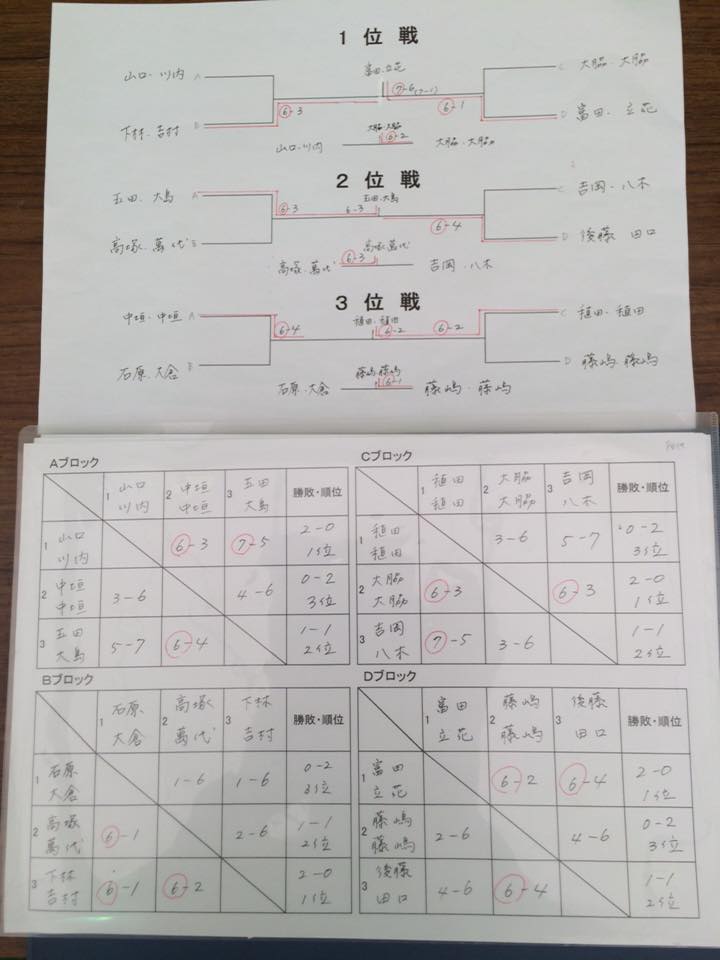 1 位 戦
富田、立花
山口・川内 A
C 大脇・大脇
⑦-6(7-1)
⑥-3
⑥-1
下林・吉村 B
D 富田、立花
大脇・大脇
⑥-2
山口・川内
大脇・大脇
2 位 戦
五田、大島 A
五田・大島
C 吉岡・八木
⑥-3
6-3
⑥-4
高塚、萬代 B
D 後藤 田口
高塚 萬代
⑥-3
高塚、萬代
吉岡・八木
3 位 戦
中垣・中垣 A
植田・植田
C 植田・植田
⑥-4
⑥-2
⑥-2
石原・大倉 B
D 藤嶋 藤嶋
藤嶋・藤嶋
⑥-1
石原・大倉
藤嶋・藤嶋
Aブロック
1 山口 川内 2 中垣 中垣 3 五田 大島 勝敗・順位
1 山口 川内 ⑥-3 ⑦-5 2-0 1位
2 中垣 中垣 3-6 4-6 0-2 3位
3 五田 大島 5-7 ⑥-4 1-1 2位
Cブロック
1 植田 植田 2 大脇 大脇 3 吉岡 八木 勝敗・順位
1 植田 植田 3-6 5-7 0-2 3位
2 大脇 大脇 ⑥-3 ⑥-3 2-0 1位
3 吉岡 八木 ⑦-5 3-6 1-1 2位
Bブロック
1 石原 大倉 2 高塚 萬代 3 下林 吉村 勝敗・順位
1 石原 大倉 1-6 1-6 0-2 3位
2 高塚 萬代 ⑥-1 2-6 1-1 2位
3 下林 吉村 ⑥-1 ⑥-2 2-0 1位
Dブロック
1 富田 立花 2 藤嶋 藤嶋 3 後藤 田口 勝敗・順位
1 富田 立花 ⑥-2 ⑥-4 2-0 1位
2 藤嶋 藤嶋 2-6 4-6 0-2 3位
3 後藤 田口 4-6 ⑥-4 1-1 2位